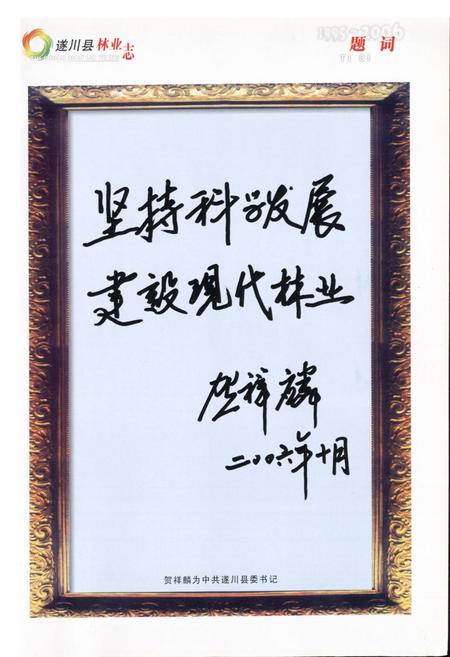 遂川县林业志
1995~2006
题词
TI CI
坚持科学发展
建设现代林业
贺祥麟
二〇〇六年十月
贺祥麟为中共遂川县委书记